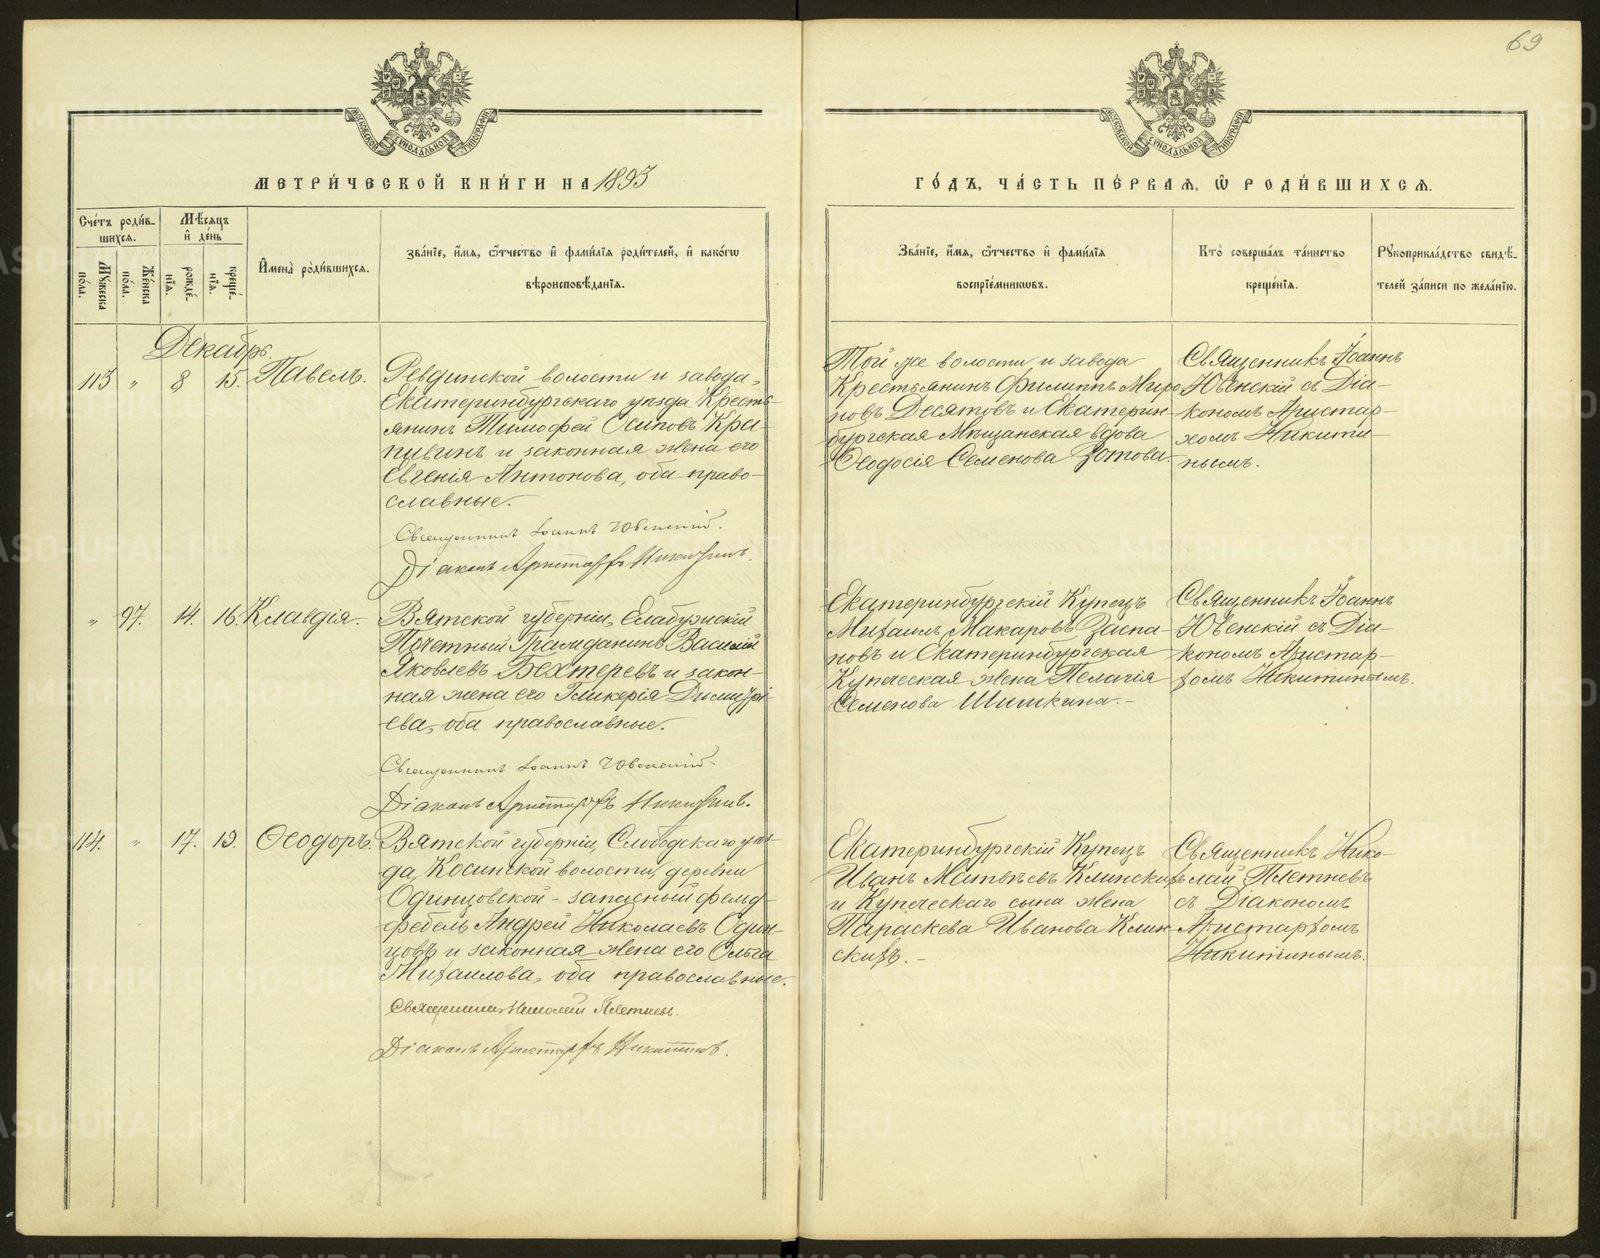 69
МОСКОВСКОЙ СѴНОДАЛЬНОЙ ТИПОГРАФІИ
МОСКОВСКОЙ СѴНОДАЛЬНОЙ ТИПОГРАФІИ
МЕТРИ́ЧЕСКОЙ КНИ́ГИ НА 1893
ГО́ДЪ, ЧА́СТЬ ПЕ́РВАЯ, Ѡ҆ РОДИ́ВШИХСЯ.
Сче́тъ роди́в-
шихся.
Мѣ́сяцъ
и҆ де́нь
Мꙋ́жеска
по́ла.
Же́нска
по́ла.
рожде́-
нїя.
креще́-
нїя.
И҆мена̀ роди́вшихся.
Зва́нїе, и҆́мя, ѻ҆́тчество и҆ фами́лїя роди́телей, и҆ како́гѡ
вѣроисповѣ́данїя.
Зва́нїе, и҆́мя, ѻ҆́тчество и҆ фами́лїя
воспрїе́мникѡвъ.
Кто̀ соверша́лъ та́инство
креще́нїя.
Рꙋкоприкла́дство свидѣ́-
телей за́писи по жела́нїю.
Декабрь.
113 „ 8 15. Павелъ.
Ревдинской волости и завода,
Екатеринбургскаго уѣзда Кресть-
янинъ Тимофей Осиповъ Кра-
пивинъ и законная жена его
Евгенія Антонова, оба право-
славные.
Священникъ Іоаннъ Ювенскій.
Діаконъ Аристархъ Никитинъ.
Той же волости и завода
Крестьянинъ Филиппъ Миро-
новъ Десятовъ и Екатерин-
бургская Мѣщанская вдова
Ѳеодосія Семенова Зотова.
Священникъ Іоаннъ
Ювенскій съ Діа-
кономъ Аристар-
хомъ Никити-
нымъ.
„ 97. 14. 16. Клавдія.
Вятской губерніи, Елабужскій
Почетный Гражданинъ Василій
Яковлевъ Бехтеревъ и закон-
ная жена его Гликерія Димитрі-
ева, оба православные.
Священникъ Іоаннъ Ювенскій.
Діаконъ Аристархъ Никитинъ.
Екатеринбургскій Купецъ
Михаилъ Макаровъ Заспа-
новъ и Екатеринбургская
Купеческая жена Пелагія
Семенова Шишкина.
Священникъ Іоаннъ
Ювенскій съ Діа-
кономъ Аристар-
хомъ Никитинымъ.
114. „ 17. 19. Ѳеодоръ.
Вятской губерніи, Слободскаго уѣз-
да, Косинской волости, деревни
Одинцовской - запасный фельд-
фебель Андрей Николаевъ Один-
цовъ и законная жена его Ольга
Михаилова, оба православные.
Священникъ Николай Плетневъ.
Діаконъ Аристархъ Никитинъ.
Екатеринбургскій Купецъ
Иванъ Матвѣевъ Клинскихъ
и Купеческаго сына жена
Параскева Иванова Клин-
скихъ. -
Священникъ Нико-
лай Плетневъ
съ Діакономъ
Аристархомъ
Никитинымъ.